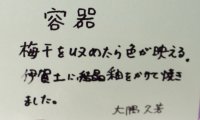 容器
梅干をいれためたら色が映える。
伊賀土に結晶釉をかけて焼き
ました。
大隅久著